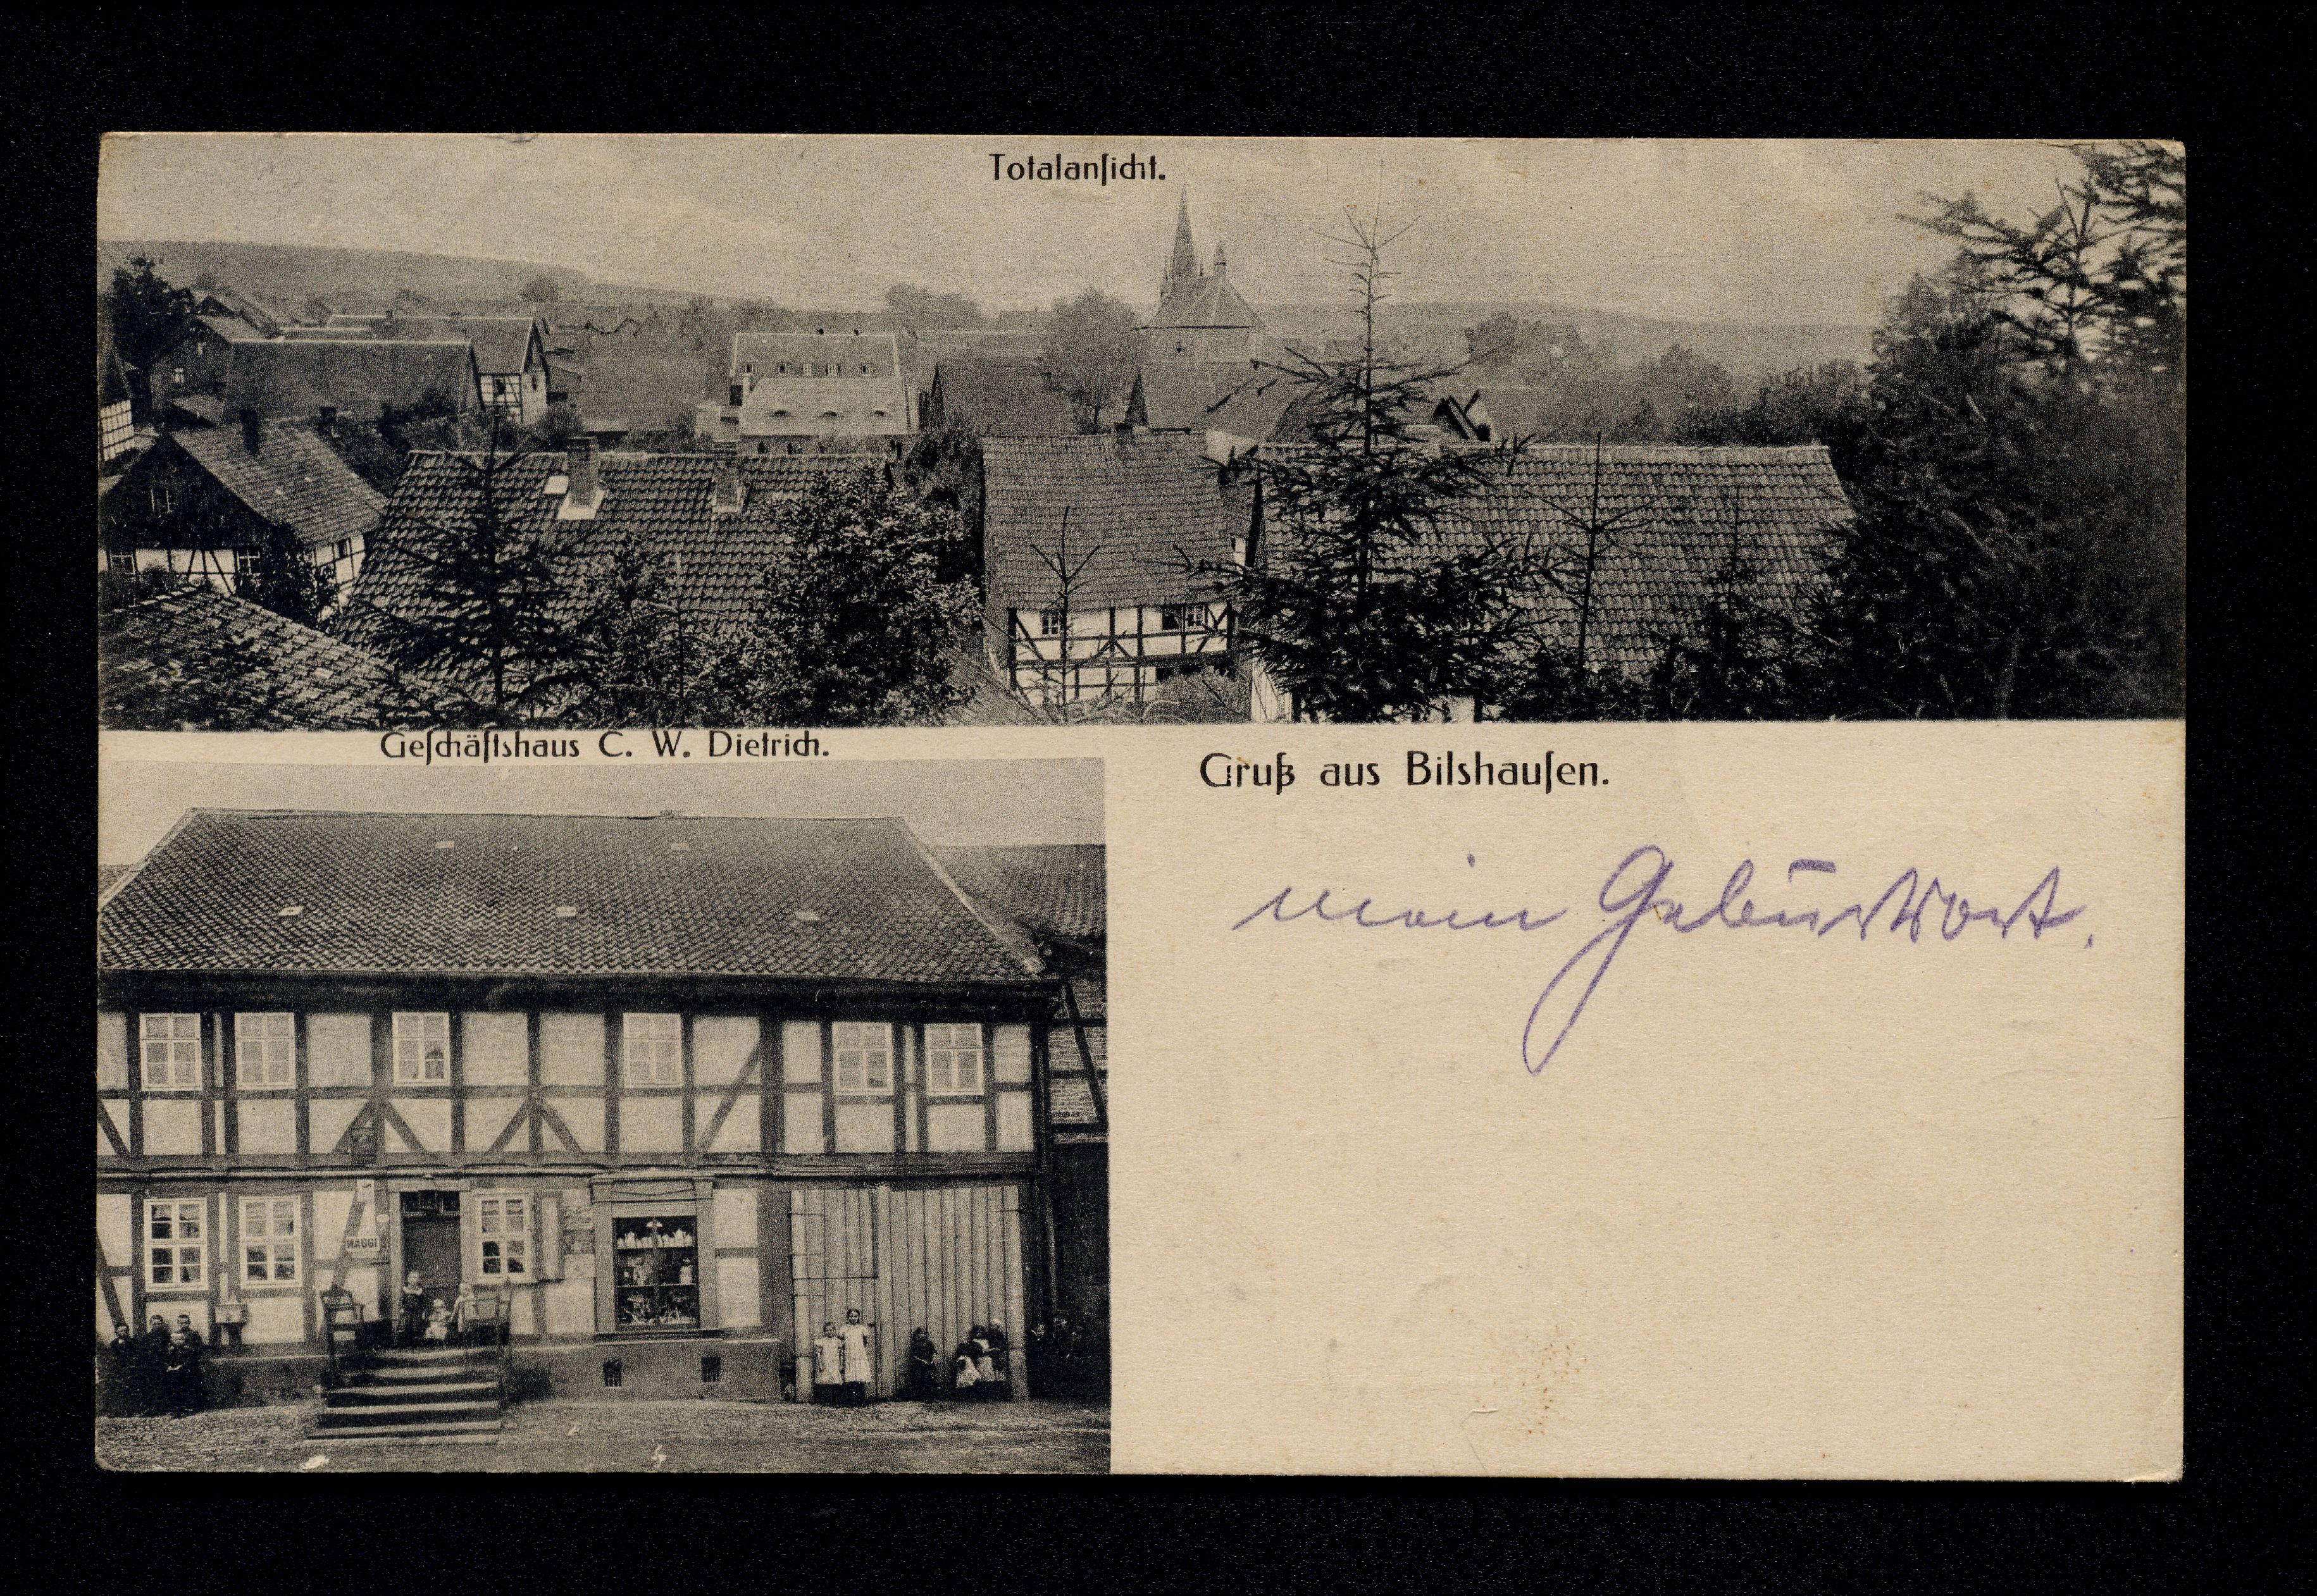 Totalanſicht.
Geſchäftshaus C. W. Dietrich.
MAGGI
Gruß aus Bilshauſen.
mein Geburtsort.